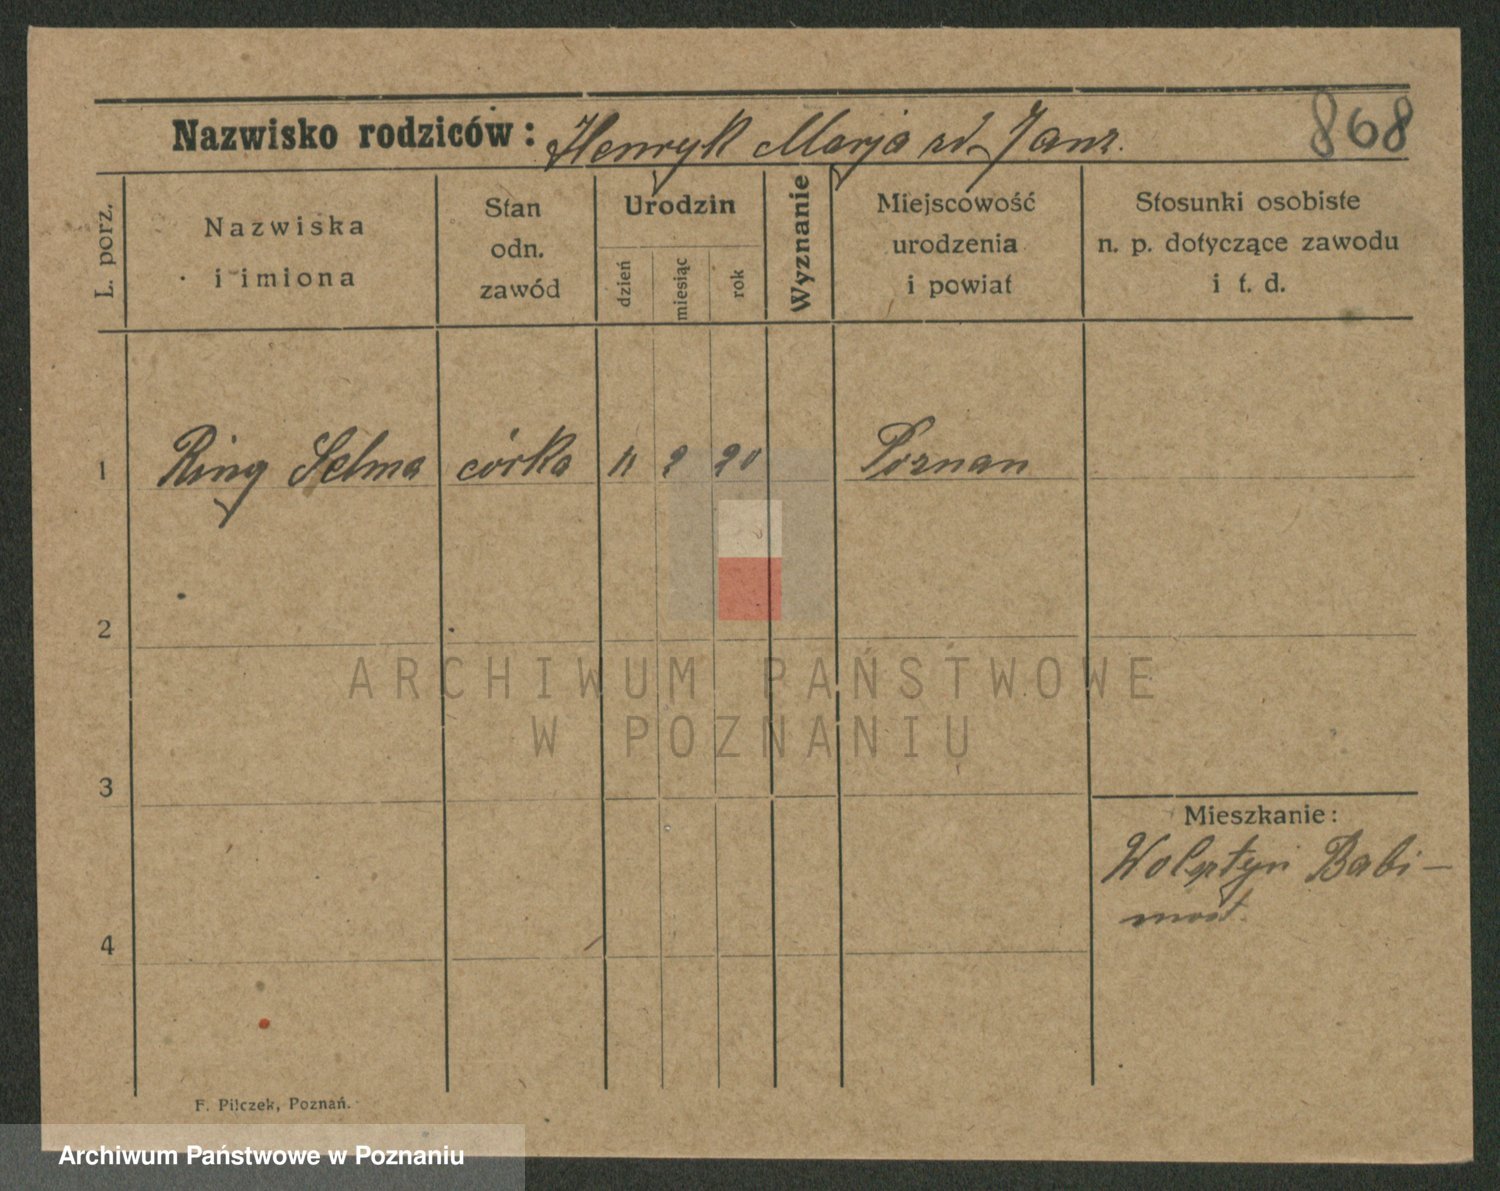 Nazwisko rodziców: Henryk Marja zd. Janz. 868
L. porz.
Nazwiska
i imiona
Stan
odn.
zawód
Urodzin
dzień
miesiąc
rok
Wyznanie
Miejscowość
urodzenia
i powiat
Stosunki osobiste
n. p. dotyczące zawodu
i t. d.
1 Ring Selma córka 11 2 20 Poznan
2
ARCHIWUM PAŃSTWOWE
W POZNANIU
3
Mieszkanie:
Wolsztyn Babi-
most.
4
F. Pilczek, Poznań.
Archiwum Państwowe w Poznaniu